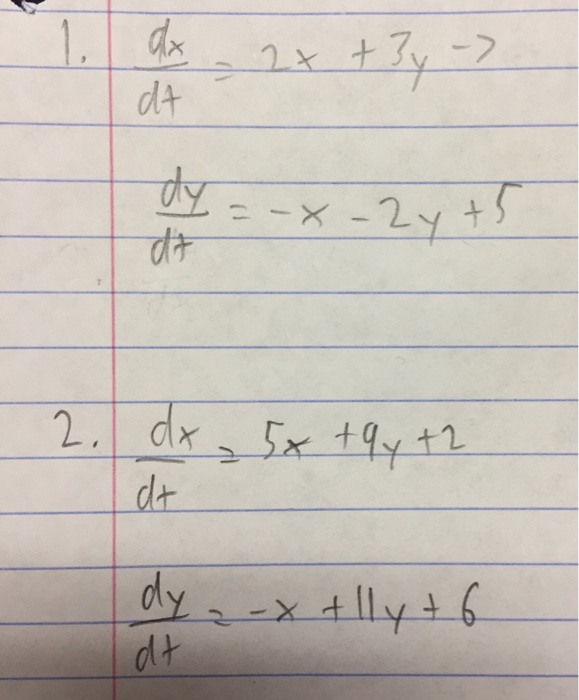 1. dx/dt = 2x + 3y - 7
dy/dt = -x - 2y + 5
2. dx/dt = 5x + 9y + 2
dy/dt = -x + 11y + 6